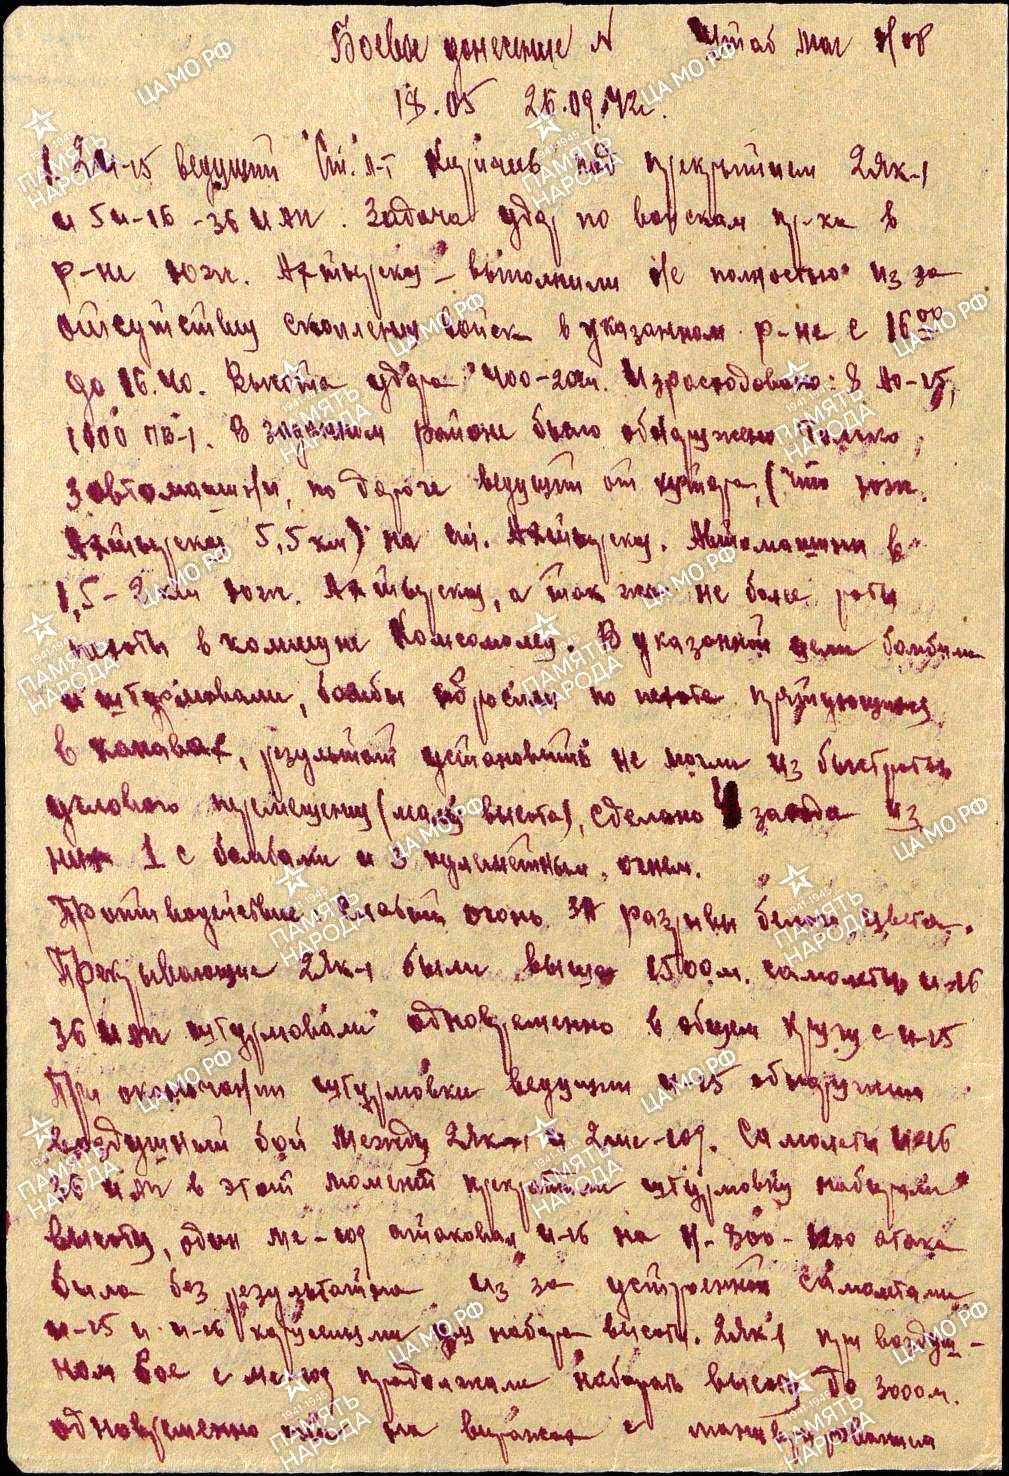 Боевое донесение № Штаб
18.05 26.09.42г.
1. 2 И-15 ведущий Ст. л-т под прикрытием 2 Як-1
и 5 И-16 - 36 ИАП. Задача удар по войскам пр-ка в
р-не юж. Ахтырская - выполнили не полностью из за
отсутствия скопления войск в указанном р-не с 16.00
до 16.40. Высота удара 400-20м. Израсходовано: 8 АО-25,
В заданном районе было обнаружено только
3 автомашины, по дороге ведущей от хутора, (что юж.
Ахтырская 5,5 км) на ст. Ахтырская. Автомашины в
1,5-2 км юж. Ахтырская, а так же не более роты
пехоты в коммуне Комсомолец. В указанной цели бомбили
и штурмовали, бомбы сбросили по пехоте прячущихся
в канавах, результат установить не могли из быстроты
углового перемещения (малая высота), сделано 4 захода из
них 1 с бомбами и 3 пулеметным огнем.
Противодействие: Слабый огонь ЗА разрывы белого цвета.
Прикрывающие 2 Як-1 были выше 1500 м. самолеты И-16
36 ИАП штурмовали одновременно в общем кругу с И-15
При окончании штурмовки ведущий И-15 обнаружил
воздушный бой между 2 Як-1 и 2 Ме-109. Самолеты И-16
36 ИАП в этот момент прекратили штурмовку набирали
высоту, один Ме-109 атаковал И-16 на атака
была без результатна из за устроенной самолетами
И-15 и И-16 набора высоты. 2 Як-1 при воздуш-
ном бое с Ме-109 продолжали набирать высоту до 3000 м.
одновременно на виражах с маневрированием
ЦАМО.РФ
ПАМЯТЬ НАРОДА
1941-1945